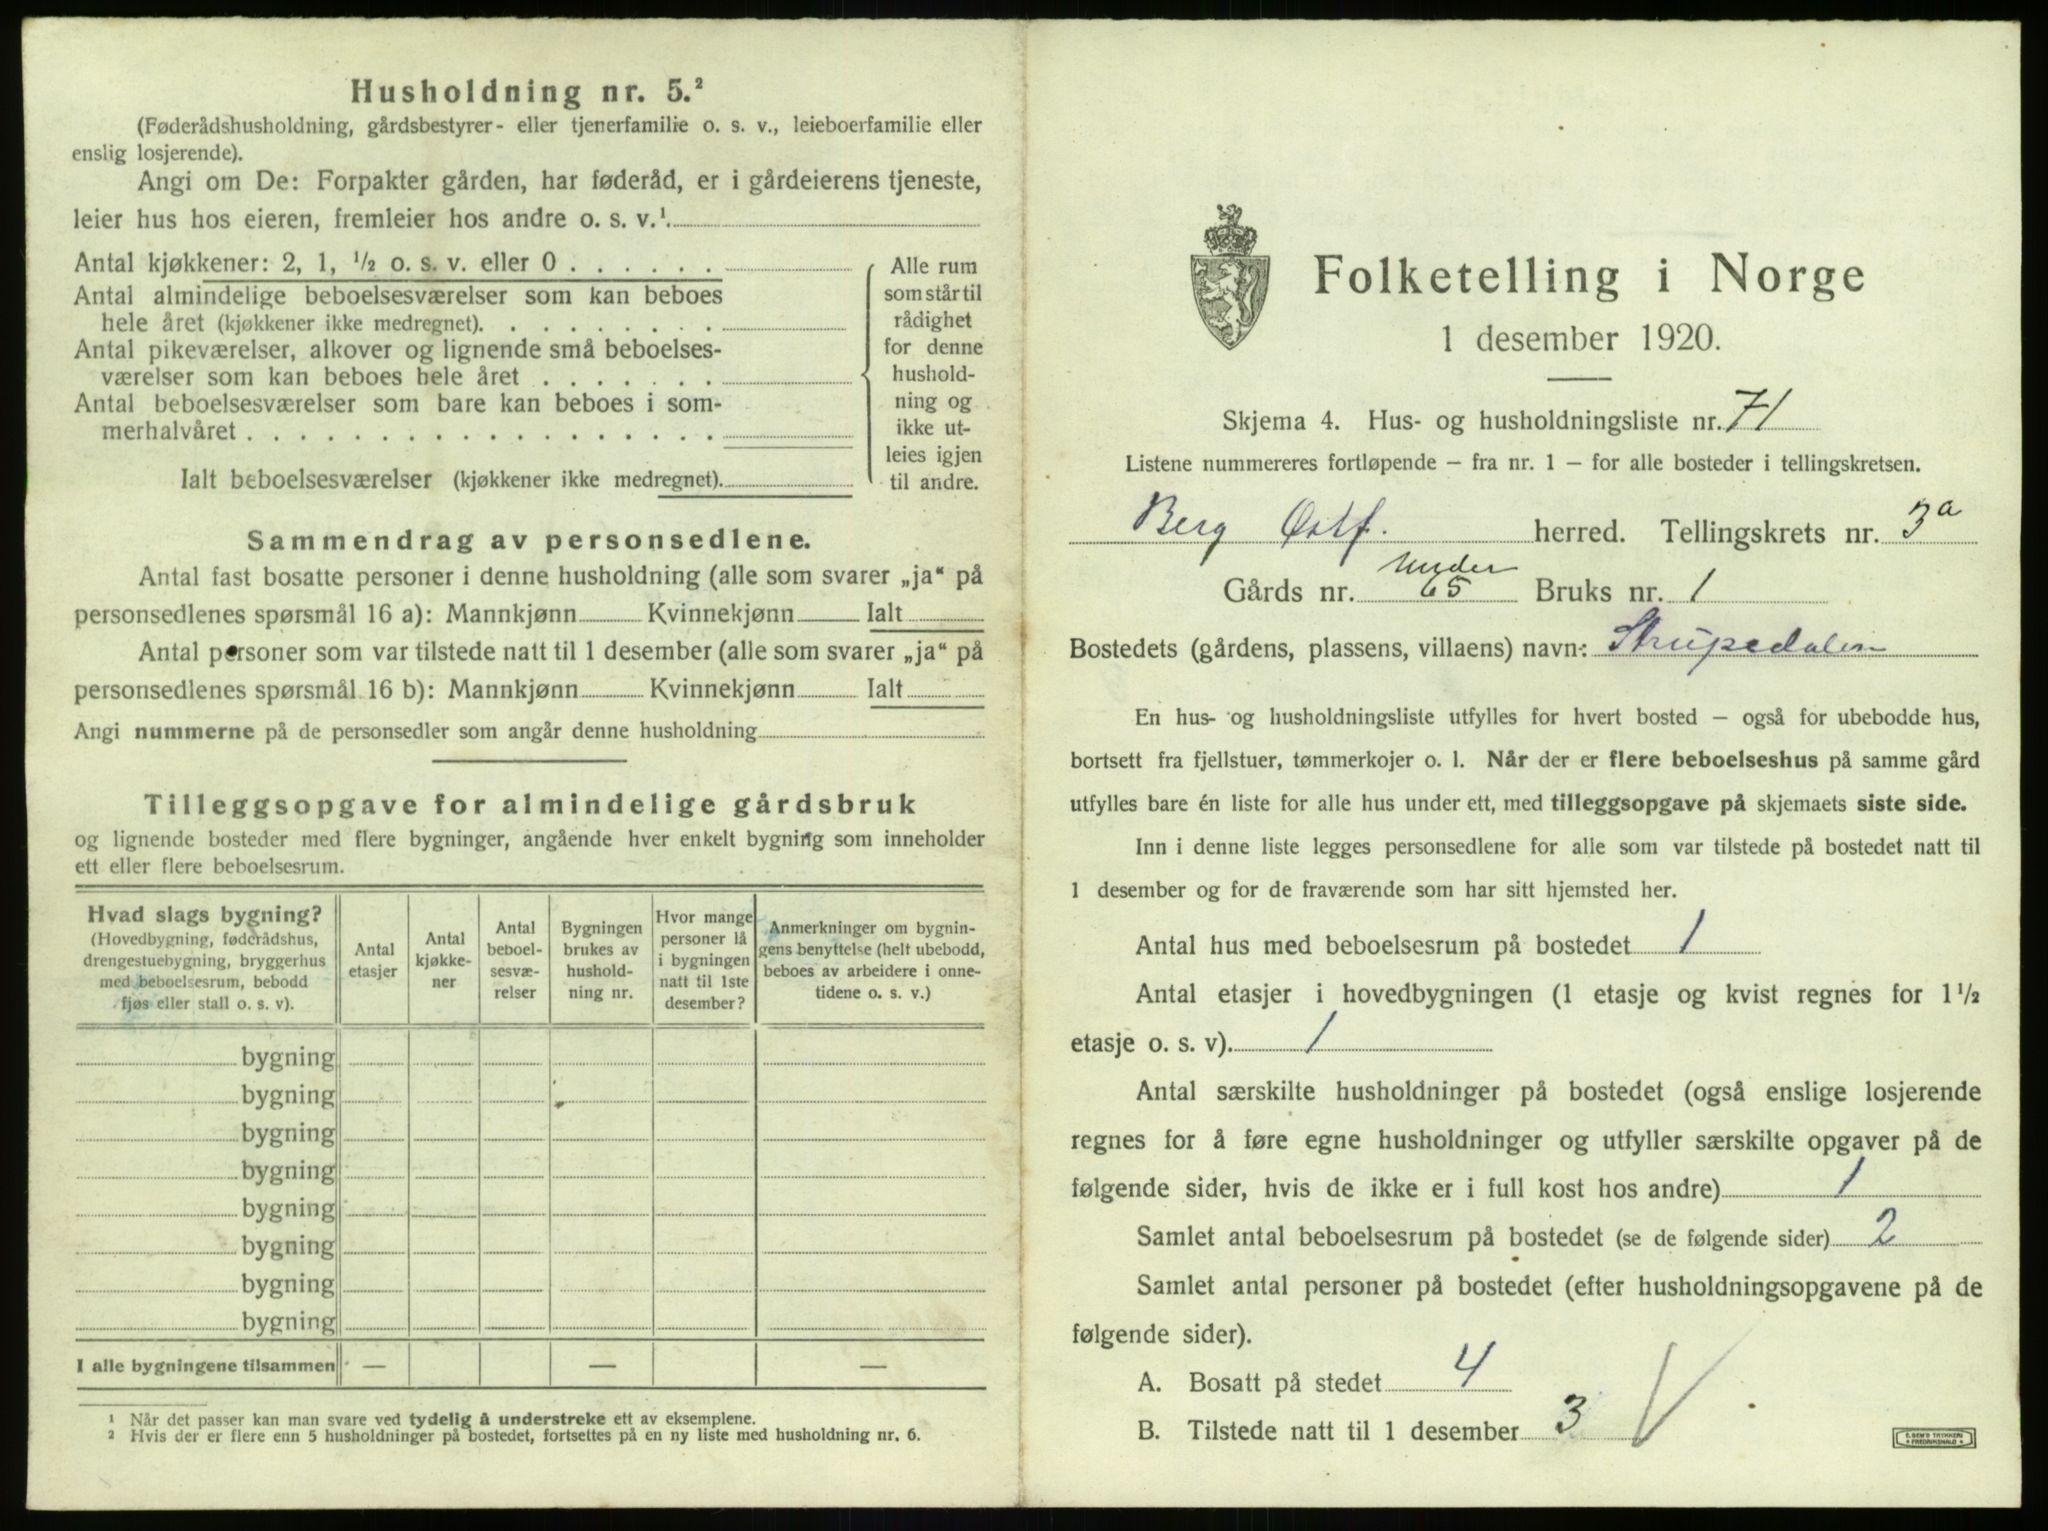 Husholdning nr. 5.²
(Føderådshusholdning, gårdsbestyrer- eller tjenerfamilie o. s. v., leieboerfamilie eller
enslig losjerende).
Angi om De: Forpakter gården, har føderåd, er i gårdeierens tjeneste,
leier hus hos eieren, fremleier hos andre o. s. v.¹
Antal kjøkkener: 2, 1, ½ o. s. v. eller 0
Antal almindelige beboelsesværelser som kan beboes
hele året (kjøkkener ikke medregnet).
Antal pikeværelser, alkover og lignende små beboelses-
værelser som kan beboes hele året
Antal beboelsesværelser som bare kan beboes i som-
merhalvåret
Ialt beboelsesværelser (kjøkkener ikke medregnet).
Alle rum
som står til
rådighet
for denne
hushold-
ning og
ikke ut-
leies igjen
til andre.
Sammendrag av personsedlene.
Antal fast bosatte personer i denne husholdning (alle som svarer „ja“ på
personsedlenes spørsmål 16 a): Mannkjønn Kvinnekjønn Ialt
Antal personer som var tilstede natt til 1 desember (alle som svarer „ja“ på
personsedlenes spørsmål 16 b): Mannkjønn Kvinnekjønn Ialt
Angi nummerne på de personsedler som angår denne husholdning
Tilleggsopgave for almindelige gårdsbruk
og lignende bosteder med flere bygninger, angående hver enkelt bygning som inneholder
ett eller flere beboelsesrum.
Hvad slags bygning?
(Hovedbygning, føderådshus,
drengestuebygning, bryggerhus
med beboelsesrum, bebodd
fjøs eller stall o. s. v).
Antal
etasjer
Antal
kjøkke-
ner
Antal
beboel-
sesvæ-
relser
Bygningen
brukes av
hushold-
ning nr.
Hvor mange
personer lå
i bygningen
natt til 1ste
desember?
Anmerkninger om bygnin-
gens benyttelse (helt ubebodd,
beboes av arbeidere i onne-
tidene o. s. v.)
bygning
bygning
bygning
bygning
bygning
bygning
bygning
bygning
I alle bygningene tilsammen — — —
¹ Når det passer kan man svare ved tydelig å understreke ett av eksemplene.
² Hvis der er flere enn 5 husholdninger på bostedet, fortsettes på en ny liste med husholdning nr. 6.
Folketelling i Norge
1 desember 1920.
Skjema 4. Hus- og husholdningsliste nr. 71
Listene nummereres fortløpende – fra nr. 1 – for alle bosteder i tellingskretsen.
Berg Østf. herred. Tellingskrets nr. 3a
under
Gårds nr. 65 Bruks nr. 1
Bostedets (gårdens, plassens, villaens) navn: Strupedalen
En hus- og husholdningsliste utfylles for hvert bosted – også for ubebodde hus,
bortsett fra fjellstuer, tømmerkojer o. l. Når der er flere beboelseshus på samme gård
utfylles bare én liste for alle hus under ett, med tilleggsopgave på skjemaets siste side.
Inn i denne liste legges personsedlene for alle som var tilstede på bostedet natt til
1 desember og for de fraværende som har sitt hjemsted her.
Antal hus med beboelsesrum på bostedet 1
Antal etasjer i hovedbygningen (1 etasje og kvist regnes for 1½
etasje o. s. v). 1
Antal særskilte husholdninger på bostedet (også enslige losjerende
regnes for å føre egne husholdninger og utfyller særskilte opgaver på de
følgende sider, hvis de ikke er i full kost hos andre) 1
Samlet antal beboelsesrum på bostedet (se de følgende sider) 2
Samlet antal personer på bostedet (efter husholdningsopgavene på de
følgende sider).
A. Bosatt på stedet 4
B. Tilstede natt til 1 desember 3
E. SEM'S TRYKKERI
FREDRIKSHALD